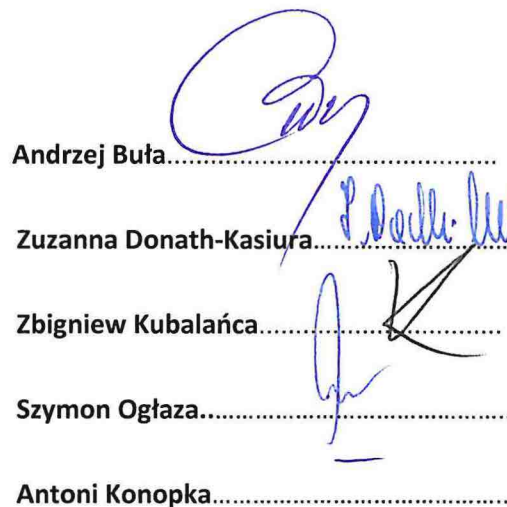 Andrzej Buła..............................................
Zuzanna Donath-Kasiura..............................
Zbigniew Kubalańca...................................
Szymon Ogłaza...........................................
Antoni Konopka..........................................